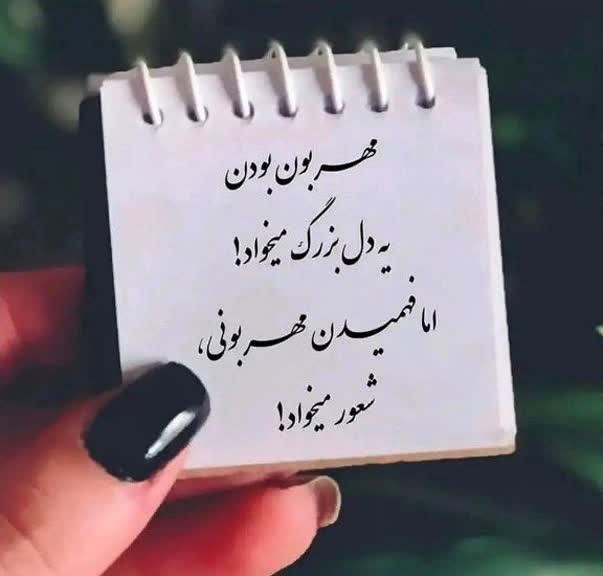 مهربون بودن
یه دل بزرگ میخواد!
اما فهمیدن مهربونی،
شعور میخواد!